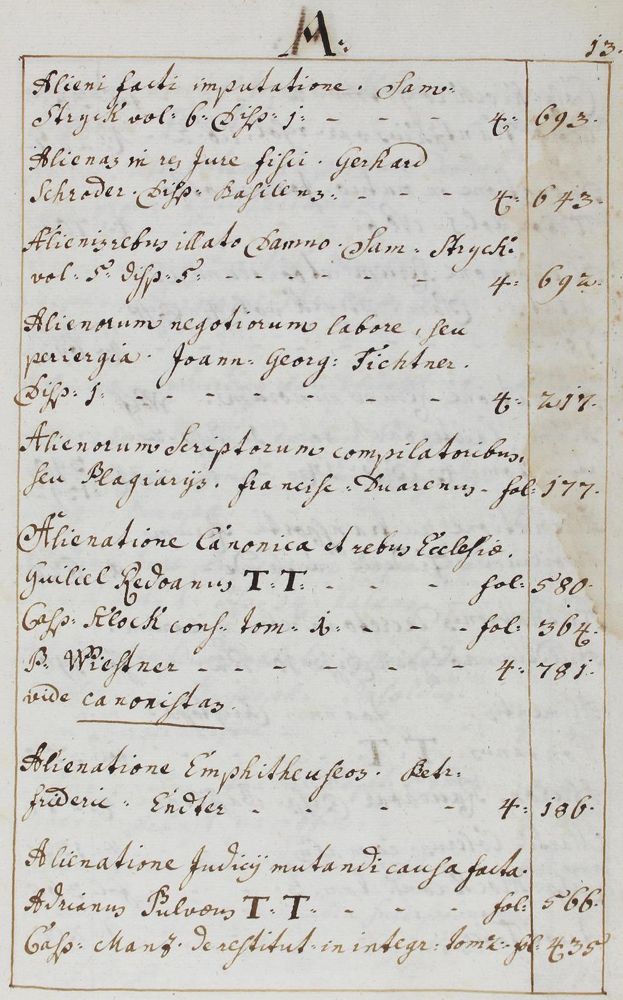 A:
13.
Alieni facti imputatione. Sam:
Stryck vol: 6: Disp: 1: - - - - 4: 693.
Alienas in res Jure fisci. Gerhard
Schroder. Disp: Basileens: - - - - 4: 643.
Alienis rebus illato Damno. Sam: Stryck:
vol: 5: disp: 5: - - - - - - 4: 692.
Alienorum negotiorum labore, seu
periergia. Joann: Georg: Fichtner.
Disp: 1. - - - - - - - 4: 217.
Alienorum Scriptorum compilatoribus,
seu Plagiarijs. Francisc: Duarenus - fol: 177.
Alienatione Canonica et rebus Ecclesiæ.
Guiliel Redoanus T. T. - - - fol: 580.
Casp: Klock cons: tom: 1: - - - fol: 364.
P. Wiestner - - - - - - 4: 781.
vide canonistas.
Alienatione Emphitheuseos. Petr:
Frideric: Endter - - - - - 4: 186.
Alienatione Judicij mutandi causa facta.
Adrianus Pulvæus T. T. - - - fol: 566.
Casp: Manz. de restitut: in integr: tom: 2: fol: 435